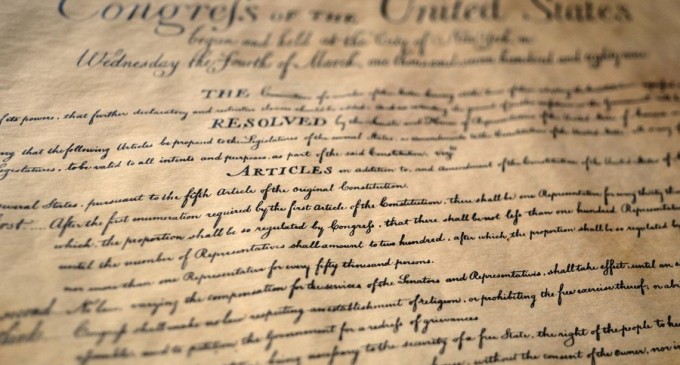 Congreſs OF THE United States
begun and held at the City of New York on
Wednesday the Fourth of March, one thousand seven hundred and eighty nine
THE
its powers, that further declaratory and restrictive clauses should be added
RESOLVED by the Senate and House of
that the following Articles be proposed to the Legislatures of the several States, as
Legislatures, to be valid to all intents and purposes, as part of the said Constitution, viz
ARTICLES in addition to, and amendment of the Constitution of the United States of
several States, pursuant to the fifth Article of the original Constitution.
After the first enumeration required by the first Article of the Constitution, there shall be one Representative for every thirty
which, the proportion shall be so regulated by Congreſs, that there shall be not leſs than one hundred Representatives
until the number of Representatives shall amount to two hundred, after which, the proportion shall be so regulated by
nor more than one Representative for every fifty thousand persons.
second No law, varying the compensation for the services of the Senators and Representatives, shall take effect, until an
Congreſs shall make no law respecting an establishment of religion, or prohibiting the free exercise thereof; or
aſsemble, and to petition the Government for a redreſs of grievances
being neceſsary to the security of a free State, the right of the people to
without the consent of the owner, nor in